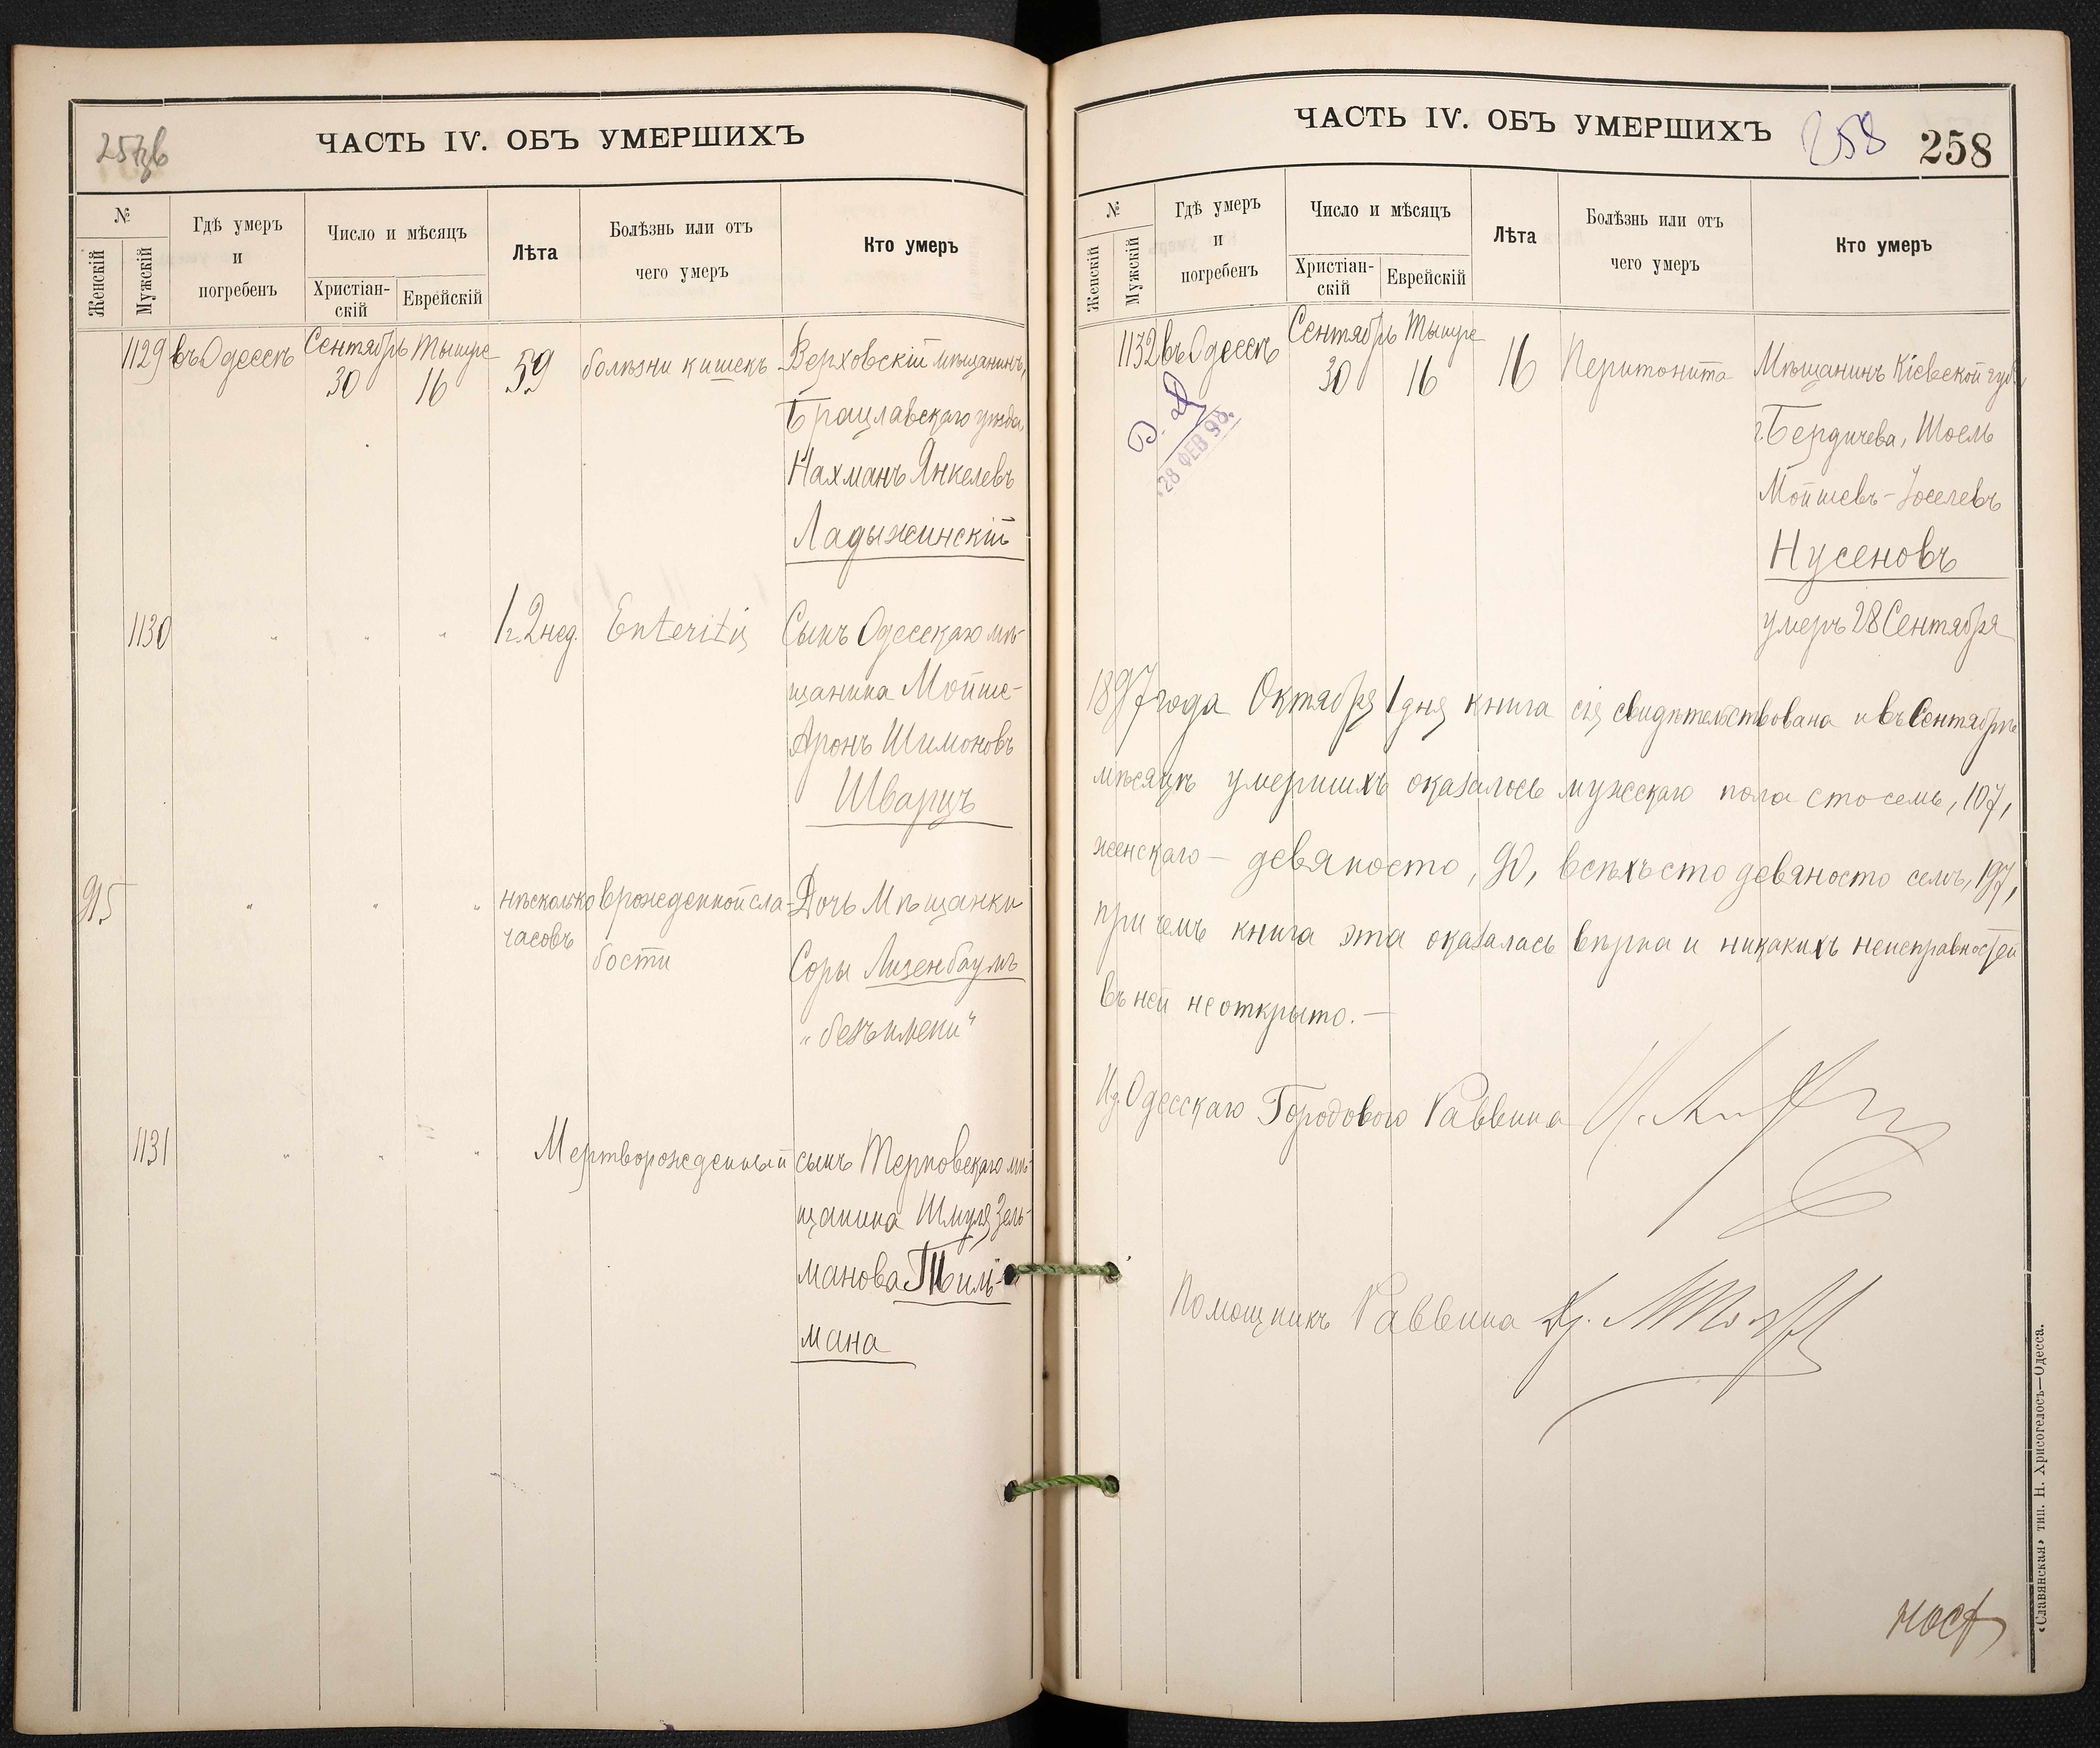 257 об
ЧАСТЬ IV. ОБЪ УМЕРШИХЪ
№
Женскій
Мужскій
Гдѣ умеръ
и
погребенъ
Число и мѣсяцъ
Христіан-
скій
Еврейскій
Лѣта
Болѣзнь или отъ
чего умеръ
Кто умеръ
1129 въ Одессѣ Сентябрь 30 Тышре 16 59 болѣзни кишекъ Верховскій мѣщанинъ,
Брацлавскаго уѣзда,
Нахманъ Янкелевъ
Ладыжинскій
1130 " " " 1 г. 2 нед. Enteritis Сынъ Одесскаго мѣ-
щанина Мойше-
Аронъ Шимоновъ
Шварцъ
95 " " " нѣсколько часовъ врожденной сла-
бости
Дочь Мѣщанки
Соры Лизенбаумъ
"безъ имени"
1131 " " " Мертворожденный сынъ Терновскаго мѣ-
щанина Шмуля Зель-
манова
мана
ЧАСТЬ IV. ОБЪ УМЕРШИХЪ
258
258
№
Женскій
Мужскій
Гдѣ умеръ
и
погребенъ
Число и мѣсяцъ
Христіан-
скій
Еврейскій
Лѣта
Болѣзнь или отъ
чего умеръ
Кто умеръ
1132 въ Одессѣ Сентябрь 30 Тышре 16 16 Перитонита Мѣщанинъ Кіевской губ.,
г. Бердичева, Шоель
Мойшевъ-Іоселевъ
Нусеновъ
умеръ 28 Сентября
28 ФЕВ 98
1897 года Октября 1 дня книга сія свидѣтельствована и въ Сентябрѣ
мѣсяцѣ умершихъ оказалось мужскаго пола сто семь, 107,
женскаго — девяносто, 90, всѣхъ сто девяносто семь, 197,
при чемъ книга эта оказалась вѣрна и никакихъ неисправностей
въ ней не открыто. —
И.д. Одесскаго Городового Раввина
Помощникъ Раввина
«Славянская» тип. Н. Хрисогелосъ—Одесса.